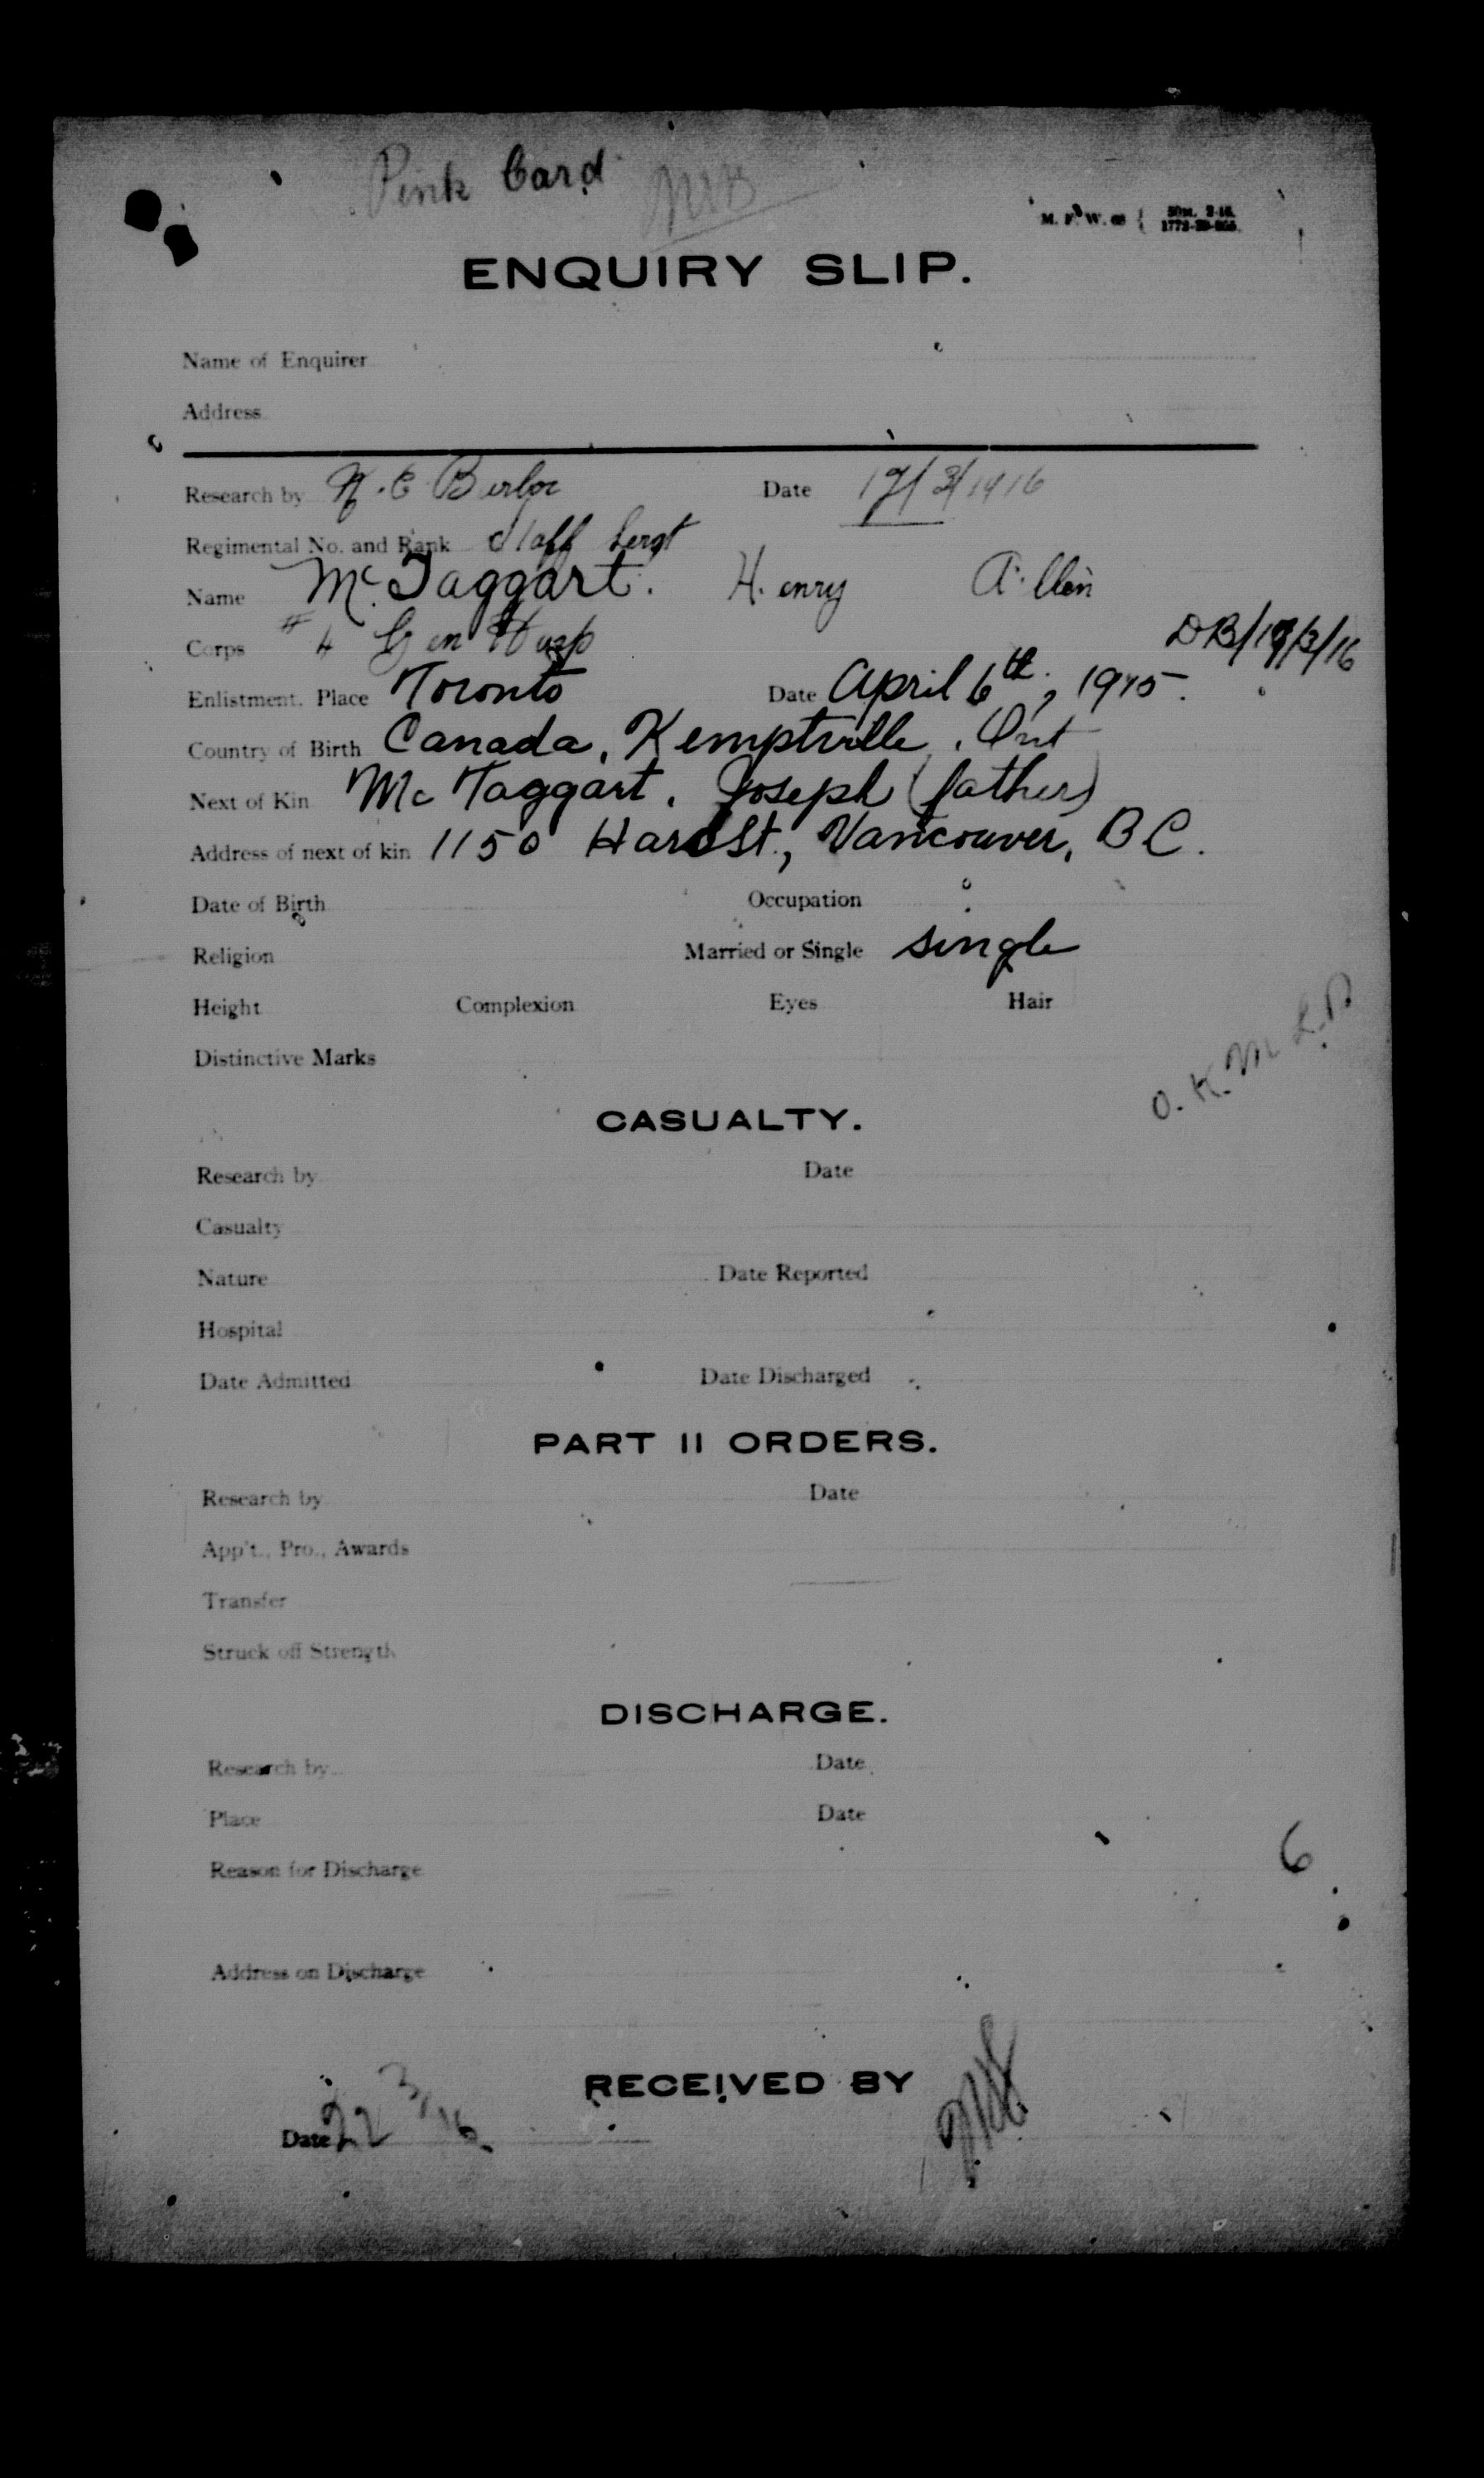 Pink Card
M. F. W. 68 { 50m. 2-16. 1772-39-
ENQUIRY SLIP.
Name of Enquirer
Address
Research by Date 17/3/1916
Regimental No. and Rank Staff Sergt
Name McTaggart. Henry Allen
DB/19/3/16
Corps # 4 Gen Hosp
Enlistment. Place Toronto Date April 6th, 1915.
Country of Birth Canada, Kemptville, Ont
Next of Kin McTaggart, Joseph (father)
Address of next of kin 1150 Haro St., Vancouver, B C.
Date of Birth Occupation
Religion Married or Single single
Height Complexion Eyes Hair
Distinctive Marks
O.K.
CASUALTY.
Research by Date
Casualty
Nature Date Reported
Hospital
Date Admitted Date Discharged
PART II ORDERS.
Research by Date
App't., Pro., Awards
Transfer
Struck off Strength
DISCHARGE.
Research by Date
Place Date
6
Reason for Discharge
Address on Discharge
RECEIVED BY
Date 22/3/16.